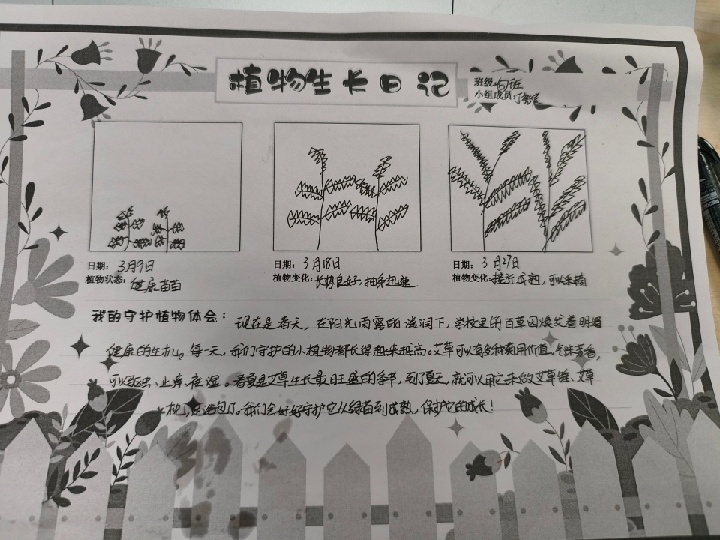 植物生长日记
班级:
小组成员:
日期: 3月9日
植物状态: 健康茁
日期: 3月18日
植物变化: 长势良好,抽条迅速
日期: 3月27日
植物变化: 接近成熟,可以采摘
我的守护植物体会: 现在是春天,在阳光雨露的滋润下,学校里的百草园焕发着明媚
健康的生机。每一天,我们守护的小植物都长得越来越高。艾草可以有多种药用价值,
可以驱虫、止痒、祛湿。春夏是艾草生长最旺盛的季节,到了夏天,就可以用它来做艾草锤、艾草
枕、香包了。我们会好好守护它从绿苗到成熟,保护它的成长!